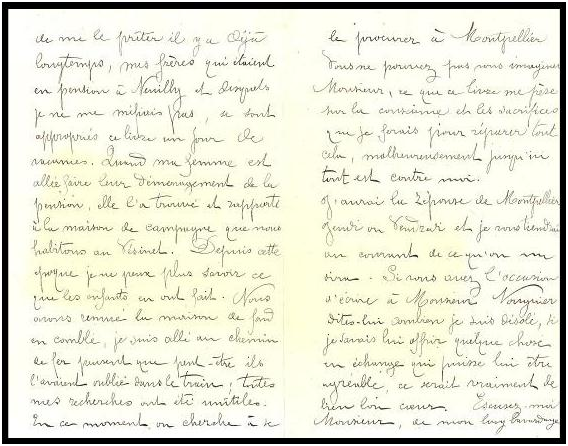 de me le prêter il y a déjà
longtemps, mes frères qui étaient
en pension à Neuilly et desquels
je ne me méfiais pas, se sont
appropriés ce livre un jour de
vacances. Quand ma femme est
allée faire leur déménagement de la
pension, elle l'a trouvé et rapporté
à la maison de campagne que nous
habitons au Vésinet. Depuis cette
époque je ne peux plus savoir ce
que les enfants en ont fait. Nous
avons remué la maison de fond
en comble, je suis allé au chemin
de fer pensant que peut-être ils
l'avaient oublié dans le train ; toutes
mes recherches ont été inutiles.
En ce moment on cherche à se
le procurer à Montpellier
Vous ne pouvez pas vous imaginer
Monsieur, ce que ce livre me pèse
sur la conscience et les sacrifices
que je ferais pour réparer tout
cela, malheureusement jusqu'ici
tout est contre moi.
J'aurai la réponse de Montpellier
Jeudi ou Vendredi et je vous tiendrai
au courant de ce qu'on me
dira. Si vous avez l'occasion
d'écrire à Monsieur
dites-lui combien je suis désolé, si
je savais lui offrir quelque chose
en échange qui puisse lui être
agréable, ce serait vraiment de
bien bon cœur. Excusez-moi
Monsieur, de mon long